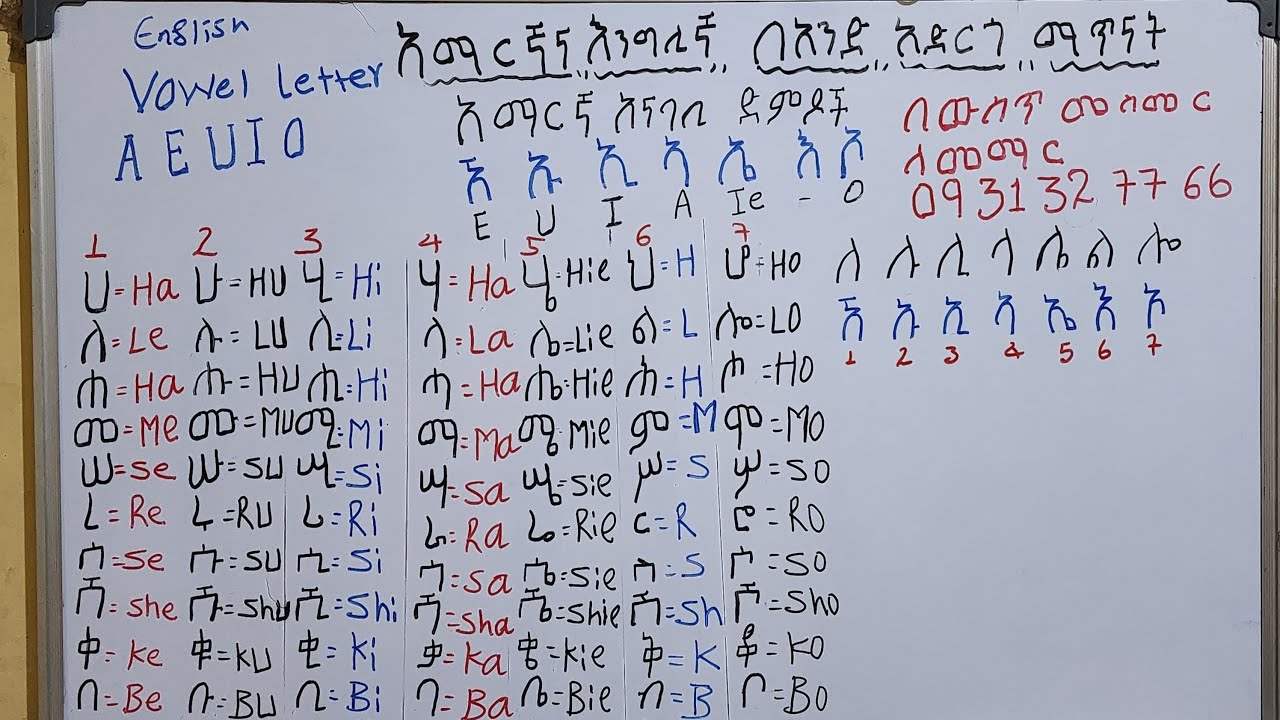 English
Vowel letter
A E U I O
አማርኛና እንግሊኛ በአንድ አድርጎ ማጥናት
አማርኛ አናባቢ ድምፆች
ኧ ኡ ኢ ኣ ኤ እ ኦ
E U I A Ie - O
ለውስጥ መስመር
ለመማር
09 31 32 77 66
ለ ሉ ሊ ላ ሌ ል ሎ
ኧ ኡ ኢ ኣ ኤ እ ኦ
1 2 3 4 5 6 7
1 2 3 4 5 6 7
ሀ=Ha ሁ=HU ሂ=Hi ሃ=Ha ሄ=Hie ህ=H ሆ=HO
ለ=Le ሉ=LU ሊ=Li ላ=La ሌ=Lie ል=L ሎ=LO
ሐ=Ha ሑ=HU ሒ=Hi ሓ=Ha ሔ=Hie ሕ=H ሖ=HO
መ=Me ሙ=MU ሚ=Mi ማ=Ma ሜ=Mie ም=M ሞ=MO
ሠ=Se ሡ=SU ሢ=Si ሣ=Sa ሤ=Sie ሥ=S ሦ=SO
ረ=Re ሩ=RU ሪ=Ri ራ=Ra ሬ=Rie ር=R ሮ=RO
ሰ=Se ሱ=SU ሲ=Si ሳ=Sa ሴ=Sie ስ=S ሶ=SO
ሸ=She ሹ=ShU ሺ=Shi ሻ=Sha ሼ=Shie ሽ=Sh ሾ=Sho
ቀ=Ke ቁ=KU ቂ=Ki ቃ=Ka ቄ=Kie ቅ=K ቆ=KO
በ=Be ቡ=BU ቢ=Bi ባ=Ba ቤ=Bie ብ=B ቦ=BO